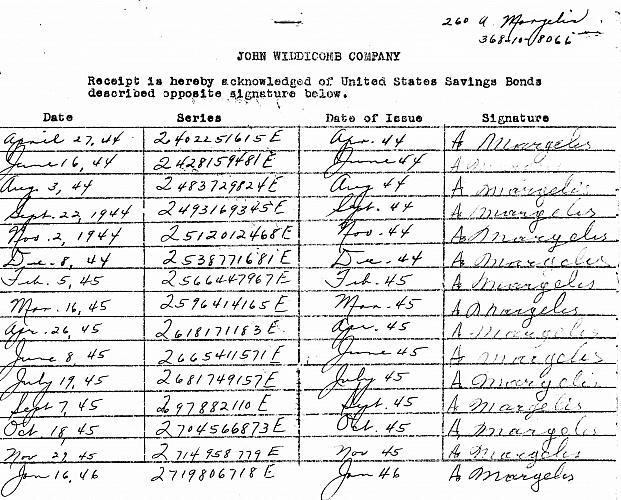 260 A. Margelis
368-10-8066
JOHN WIDDICOMB COMPANY
Receipt is hereby acknowledged of United States Savings Bonds
described opposite signature below.
Date Series Date of Issue Signature
April 27, 44 2402251615E Apr. 44 A Margelis
June 16, 44 2428159481E June 44 A
Aug. 3, 44 2483729824E Aug 44 A Margelis
Sept. 22, 1944 2493169345E Sept. 44 A Margelis
Nov. 2, 1944 2512012468E Nov. 44 A Margelis
Dec. 8, 44 2538771681E Dec. 44 A Margelis
Feb. 5, 45 2566447967E Feb. 45 A Margelis
Mar. 16, 45 2596414165E Mar. 45 A Margelis
Apr. 26, 45 2618171183E Apr. 45 A Margelis
June 8, 45 2665411571E June 45 A Margelis
July 19, 45 2681749157E July 45 A Margelis
Sept 7, 45 2697882110E Sept. 45 A Margelis
Oct. 18, 45 2704566873E Oct. 45 A Margelis
Nov 29, 45 2714958779E Nov 45 A Margelis
Jan 16, 46 2719806718E Jan 46 A Margelis